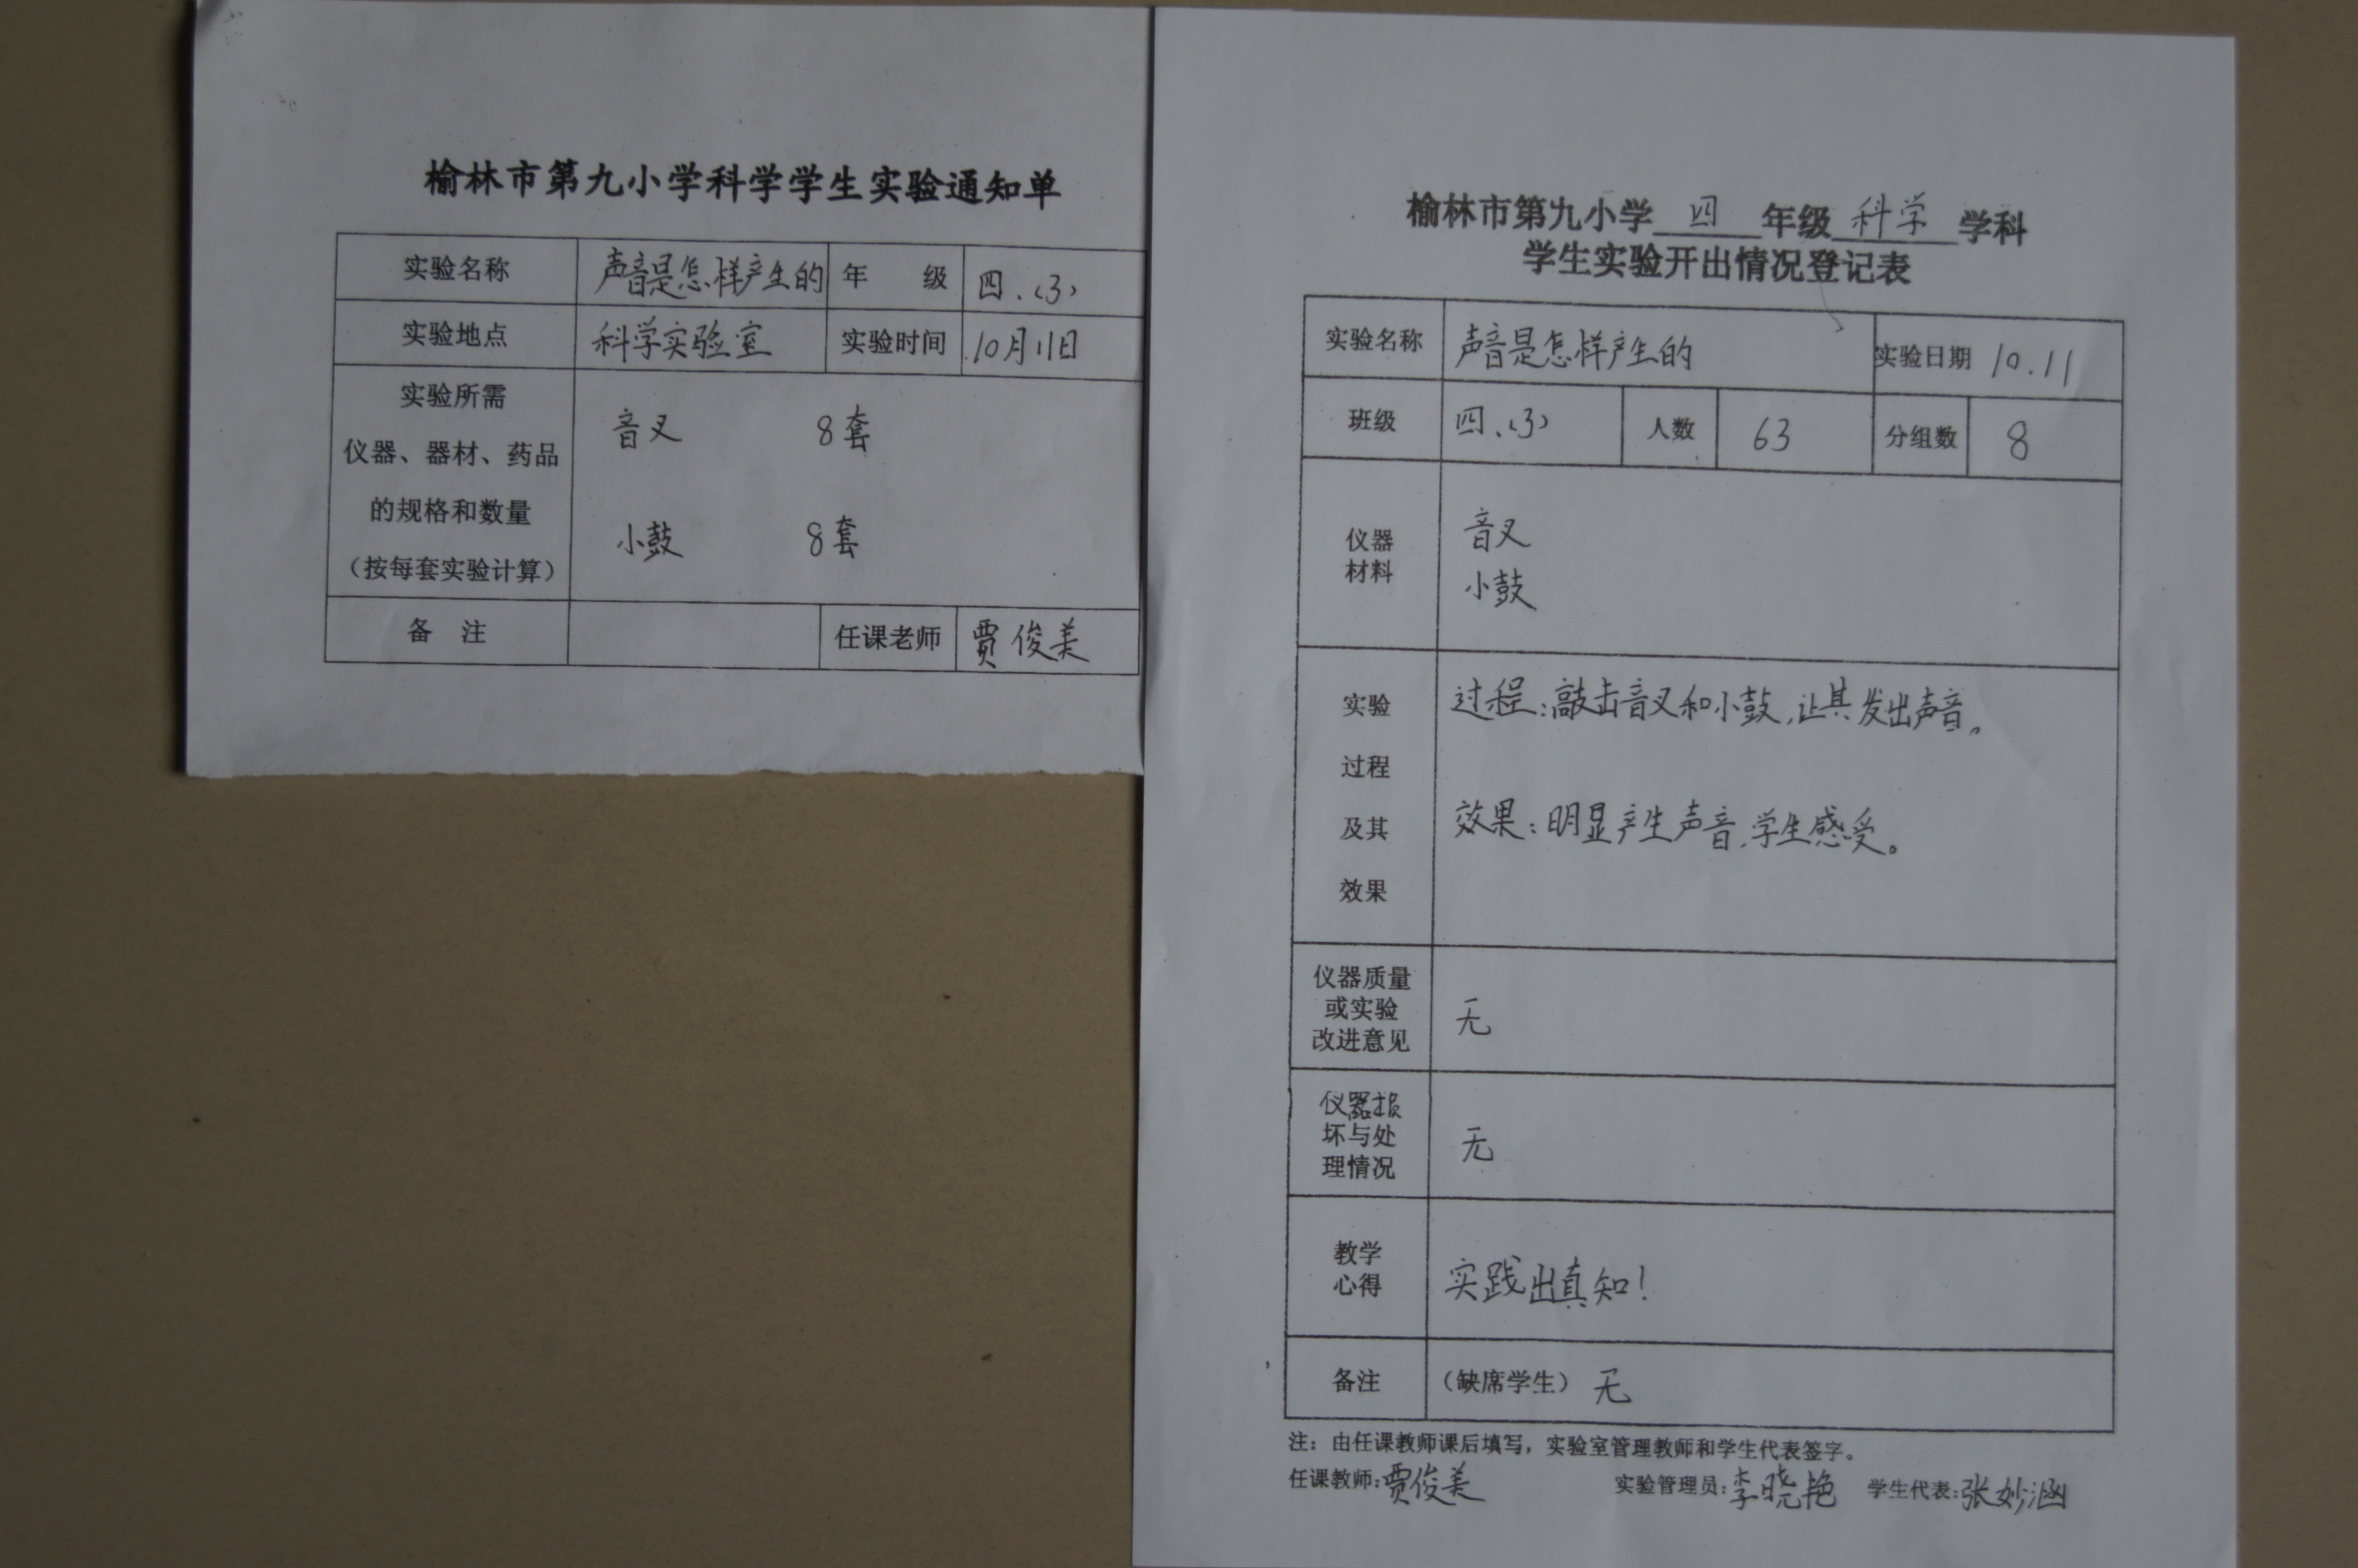 榆林市第九小学科学学生实验通知单
实验名称 声音是怎样产生的 年 级 四、(3)
实验地点 科学实验室 实验时间 10月11日
实验所需
仪器、器材、药品
的规格和数量
(按每套实验计算)
音叉 8套
小鼓 8套
备 注 任课老师 贾俊美
榆林市第九小学 四 年级 科学 学科
学生实验开出情况登记表
实验名称 声音是怎样产生的 实验日期 10.11
班级 四、(3) 人数 63 分组数 8
仪器
材料
音叉
小鼓
实验
过程
及其
效果
过程:敲击音叉和小鼓,让其发出声音。
效果:明显产生声音,学生感受。
仪器质量
或实验
改进意见
无
仪器损
坏与处
理情况
无
教学
心得
实践出真知!
备注 (缺席学生) 无
注:由任课教师课后填写,实验室管理教师和学生代表签字。
任课教师:贾俊美 实验管理员:李晓艳 学生代表:张妙涵